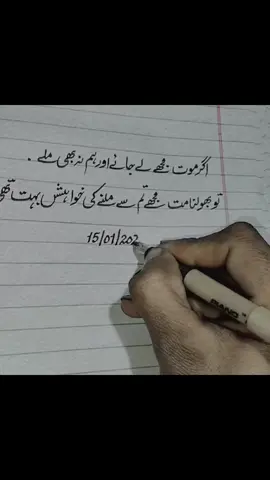 اگر موت مجھے لے جائے اور ہم نہ بھی ملے ۔
تو بھولنا مت مجھے تم سے ملنے کی خواہش بہت تھی
15/01/202